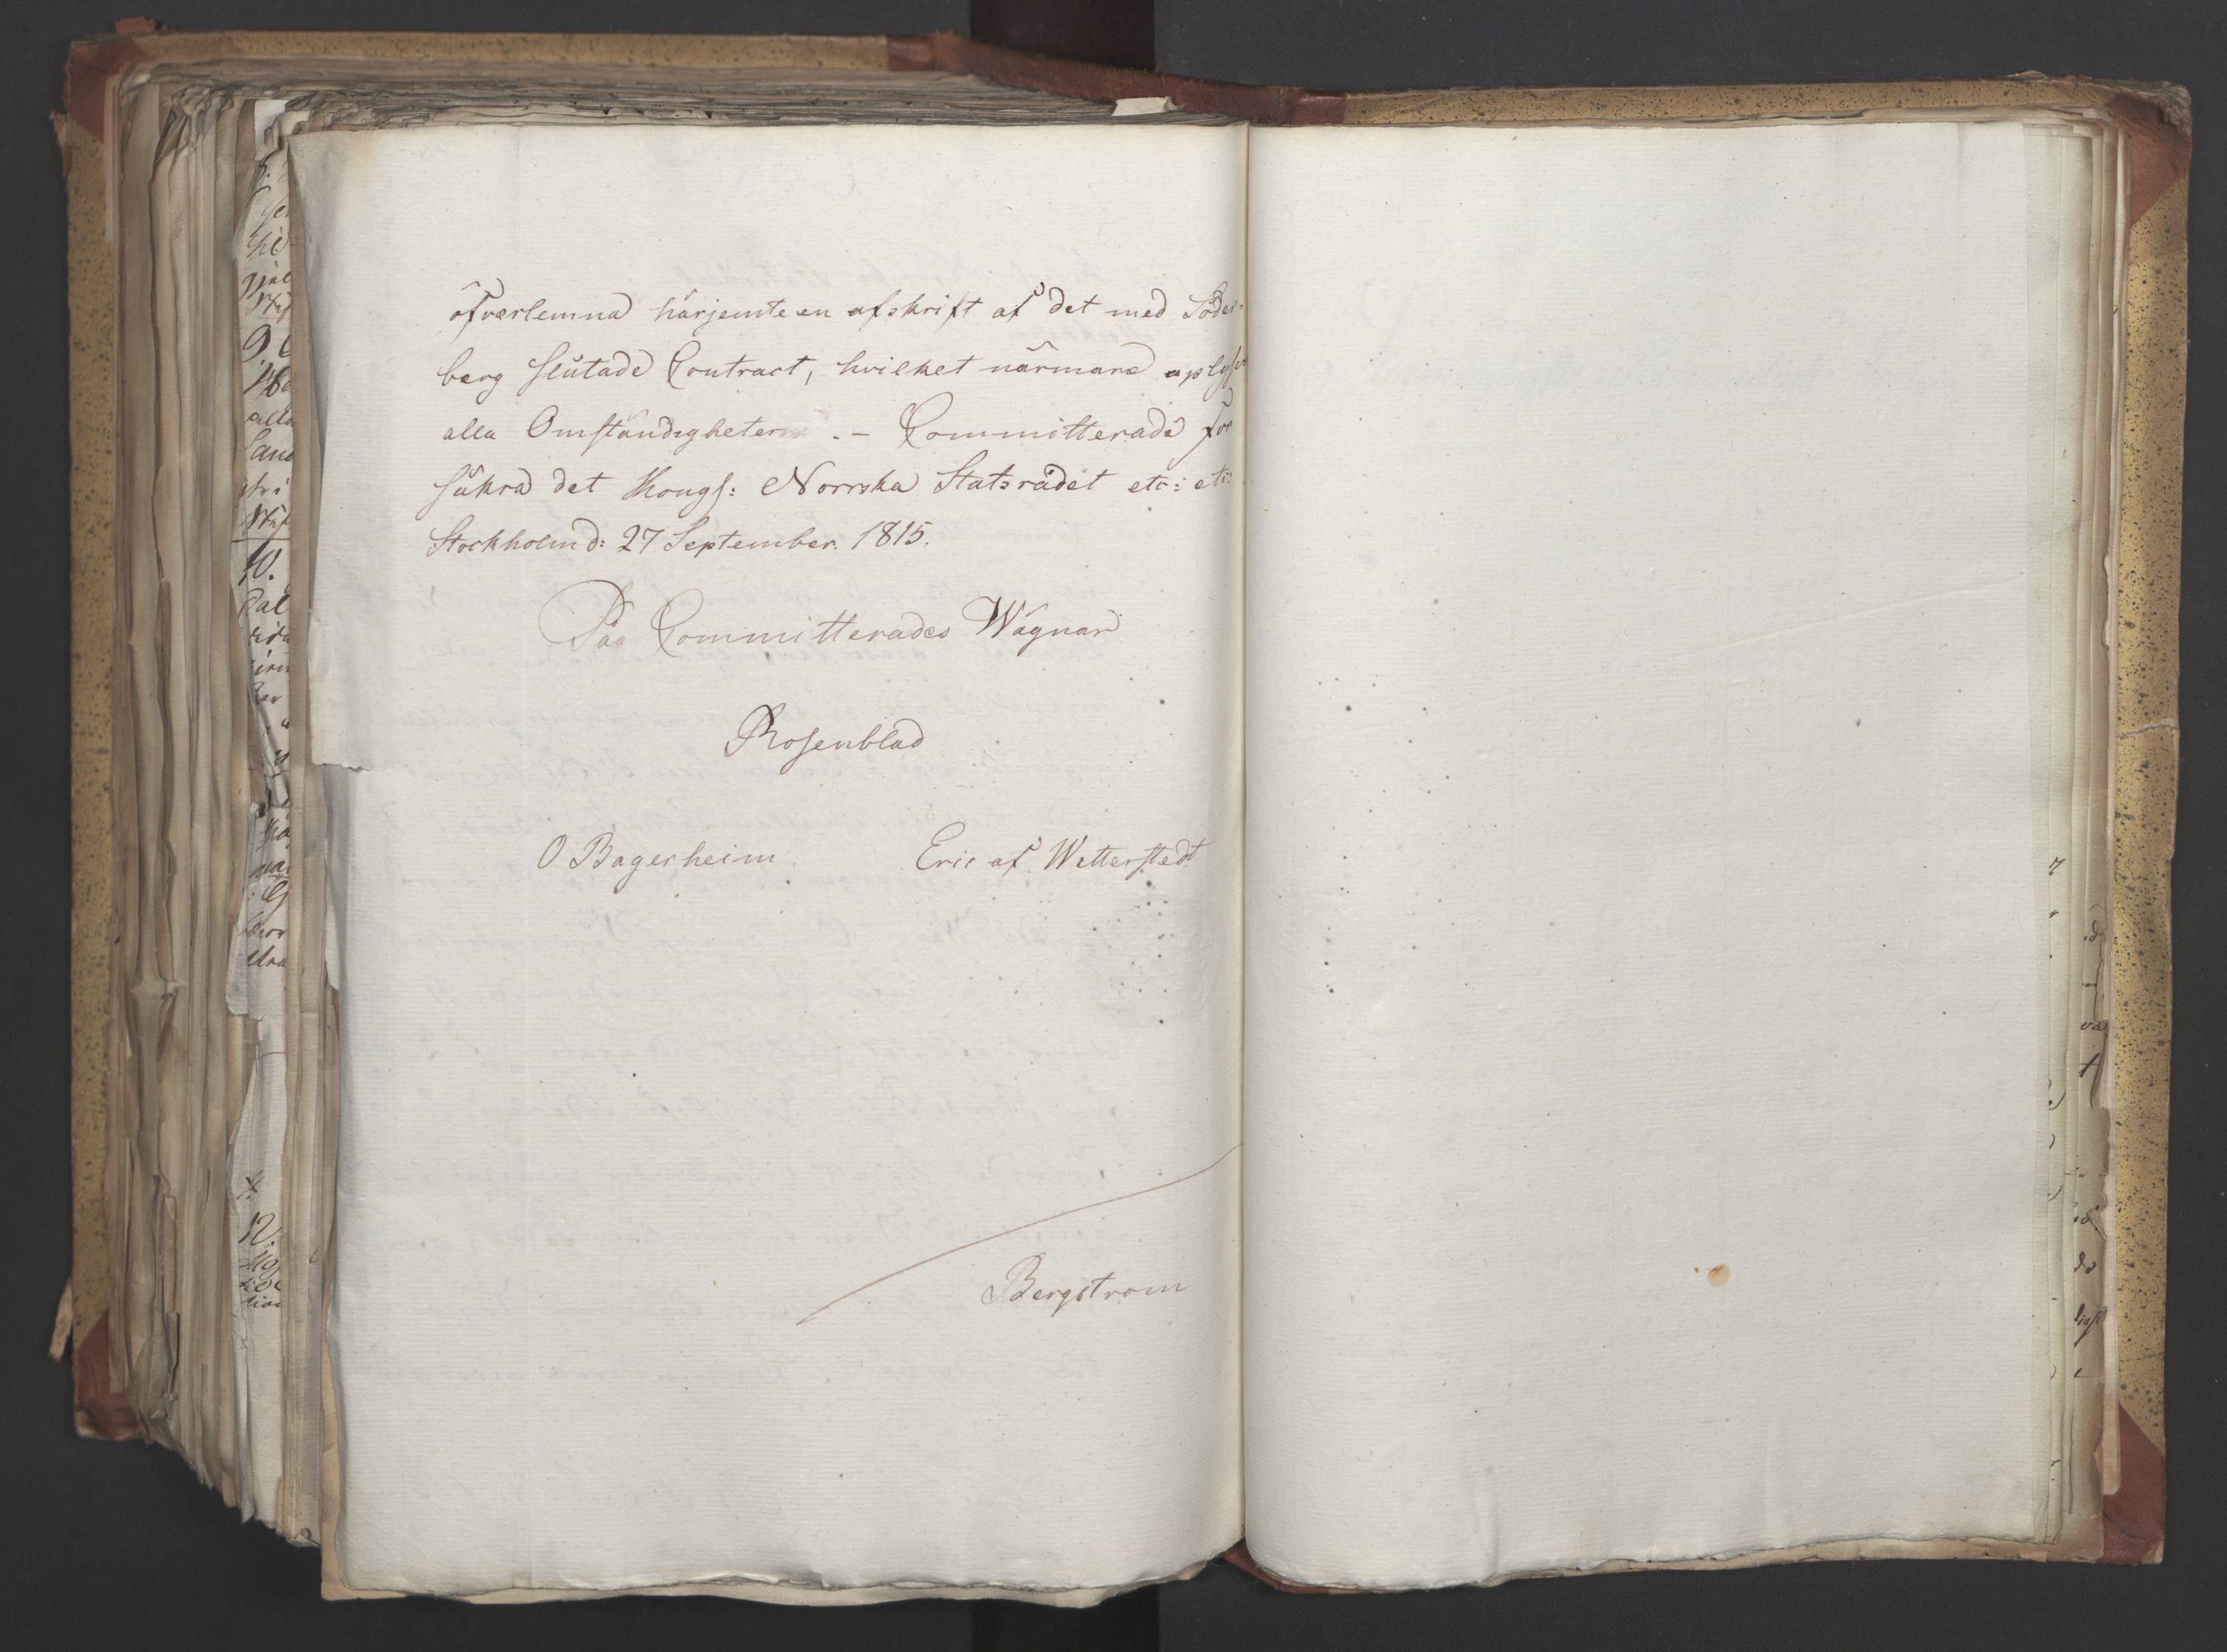 öfverlemna härjemte en afskrift af det med Söder-
berg slutade Contract, hvilket närmare oplyser
alla Omständigheter. - Committerade för
säkra det Kongl: Norrska Statsrådet etc: etc:
Stockholm d: 27 September. 1815.
Paa Committerades Wägnar
Rosenblad
O Bagerheim
Eric af Wetterstedt
Bergstrom